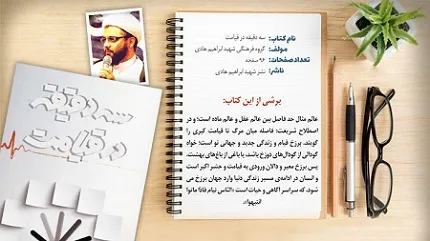 نام کتاب: سه دقیقه در قیامت
مولف: گروه فرهنگی شهید ابراهیم هادی
تعداد صفحات: ۹۶ صفحه
ناشر: نشر شهید ابراهیم هادی
برشی از این کتاب:
عالم مثال حد فاصل بین عالم عقل و عالم ماده است؛ و در
اصطلاح شریعت: فاصله میان مرگ تا قیامت کبری را
گویند. برزخ قیام و زندگی جدید و جهانی نو است؛ خواه
گودالی از گودال‌های دوزخ باشد، یا باغی از باغ‌های بهشت.
پس برزخ معبر و دالان ورودی به قیامت و حشر اکبر است
و انسان در ادامه‌ی مسیر زندگی دنیا وارد جهان برزخ می
شود، که سراسر آگاهی و حیات است «الناس نیام فاذا ماتوا
انتبهوا».
سه دقیقه
در قیامت